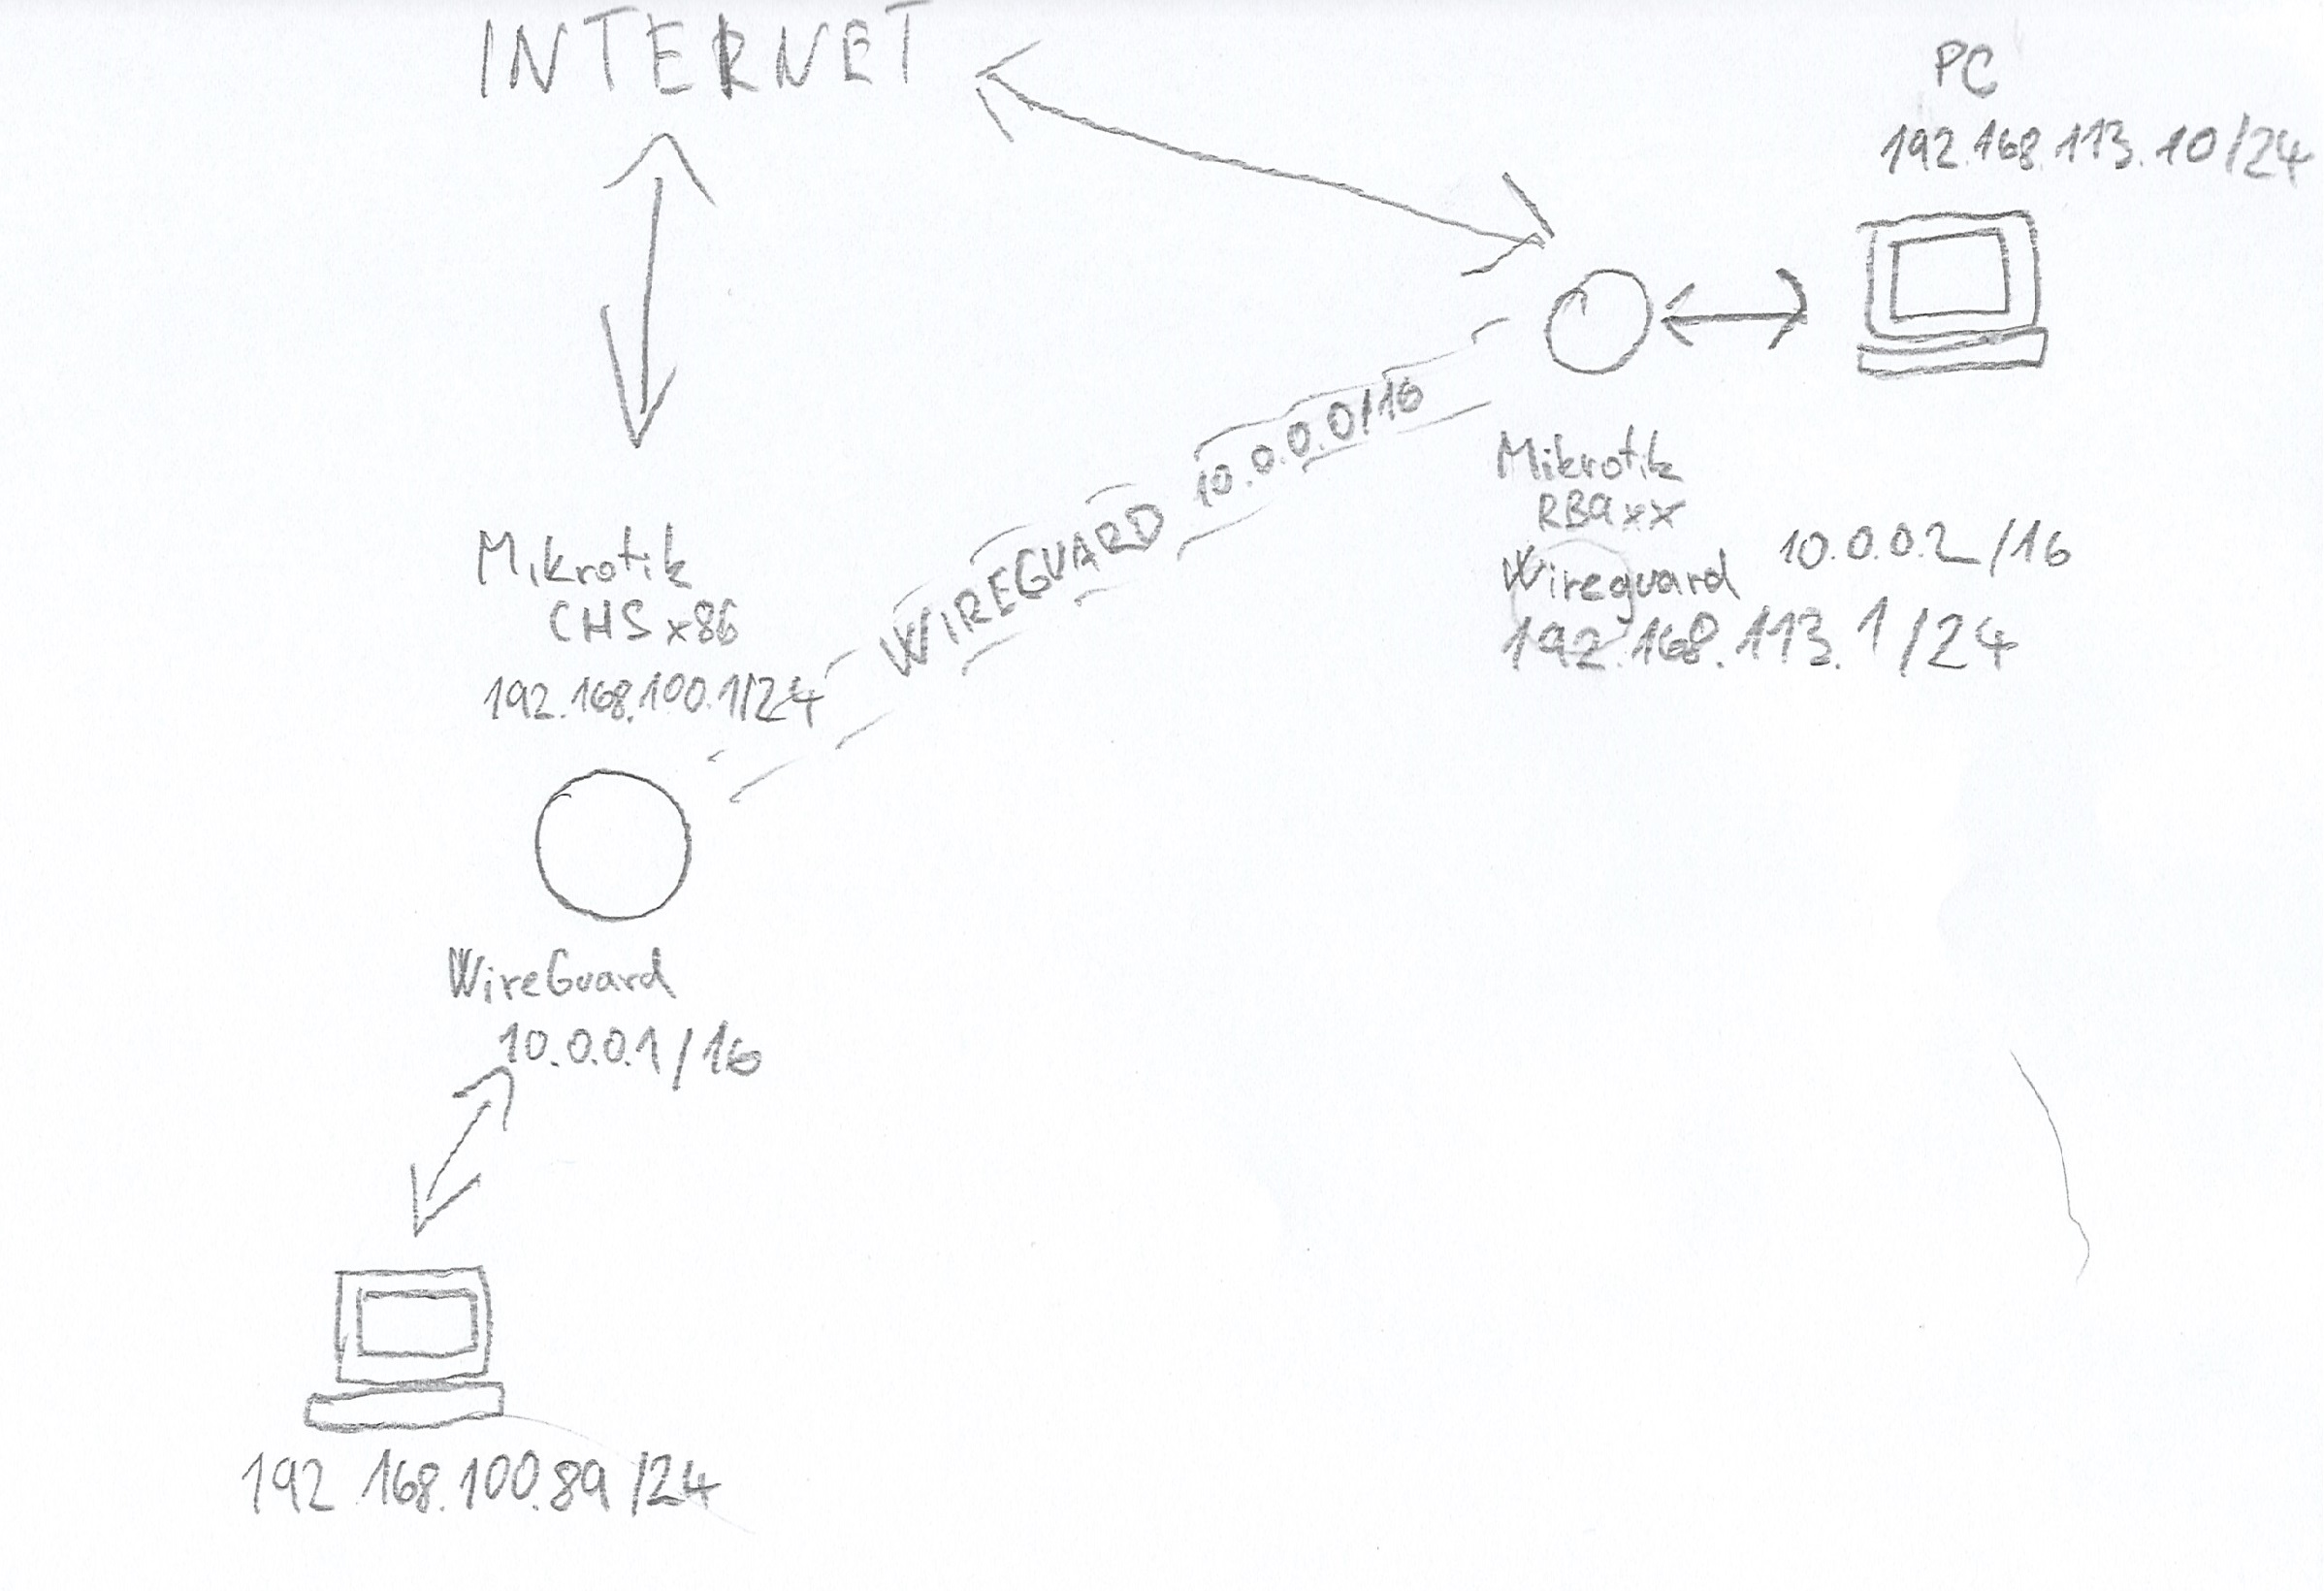 INTERNET
PC
192.168.113.10/24
Mikrotik
RB9xx
Wireguard 10.0.0.2/16
192.168.113.1/24
WIREGUARD 10.0.0.0/16
Mikrotik
CHS x86
192.168.100.1/24
WireGuard
10.0.0.1/16
192.168.100.89/24